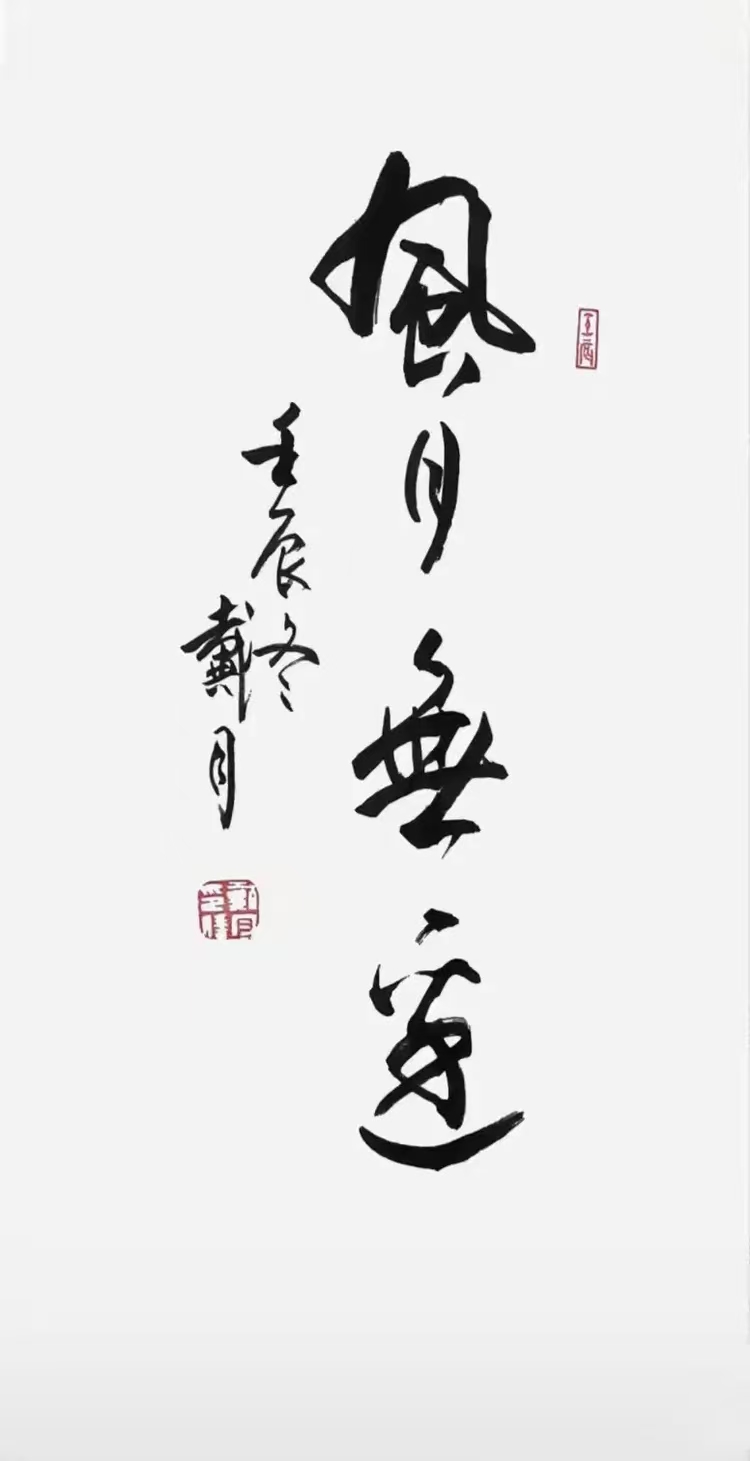 壬辰
風月無邊
壬辰冬
戴月